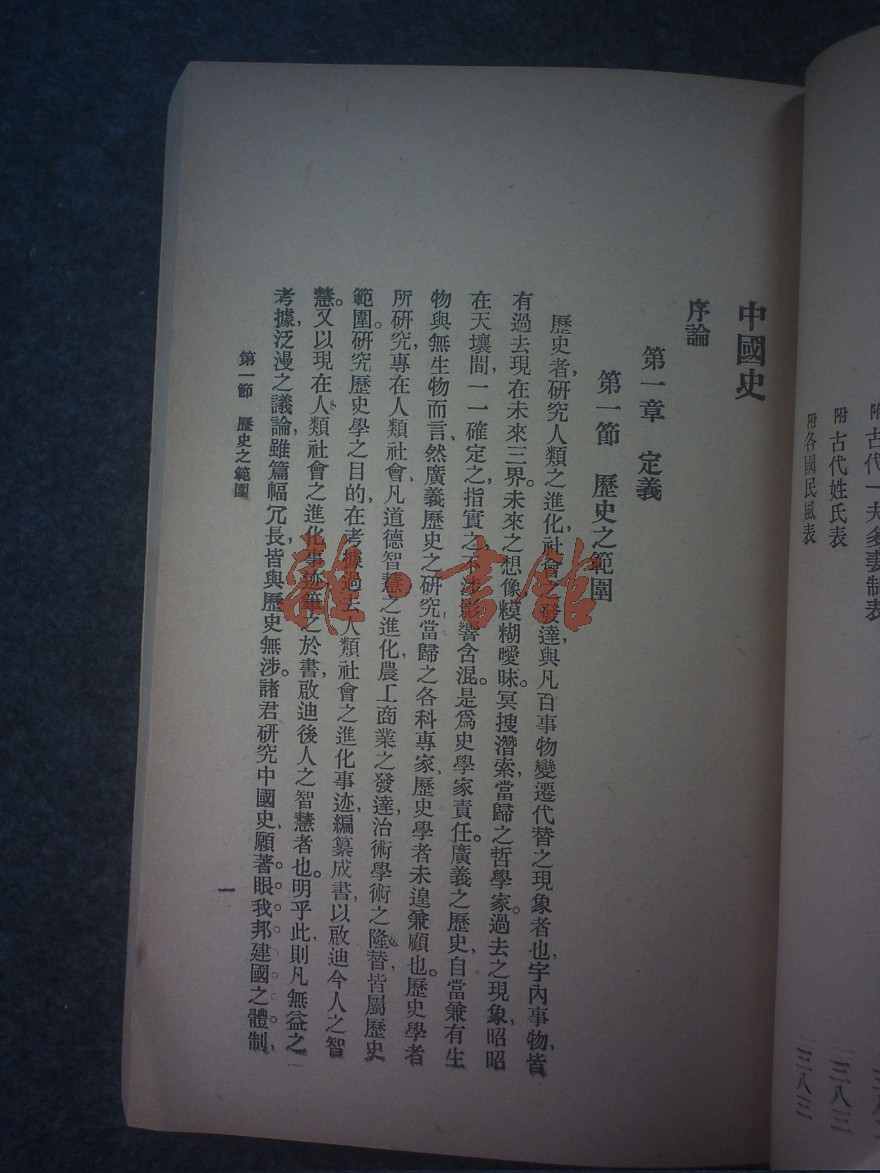 附古代一夫多妻制表
附 古代姓氏表
一三八三
附各國民風表
一三八三
中國史
序論
第一章 定義
第一節 歷史之範圍
歷史者，研究人類之進化，社會之發達，與凡百事物變遷代替之現象者也，宇內事物，皆
有過去現在未來三界。未來之想像糢糊曖昧。冥搜潛索，當歸之哲學家。過去之現象，昭昭
在天壤間，一一確定之，指實之，不涉影響含混。是爲史學家責任。廣義之歷史，自當兼有生
物與無生物而言，然廣義歷史之研究，當歸之各科專家，歷史學者未遑兼顧也。歷史學者
所研究，專在人類社會，凡道德智慧之進化，農工商業之發達，治術學術之隆替，皆屬歷史
範圍。研究歷史學之目的，在考據過去人類社會之進化事迹，編纂成書，以啟迪今人之智
慧。又以現在人類社會之進化事迹，筆之於書，啟迪後人之智慧者也。明乎此，則凡無益之
考據，泛漫之議論，雖篇幅冗長，皆與歷史無涉。諸君研究中國史，願著眼我邦建國之體制，
第一節 歷史之範圍
一
雜·書館